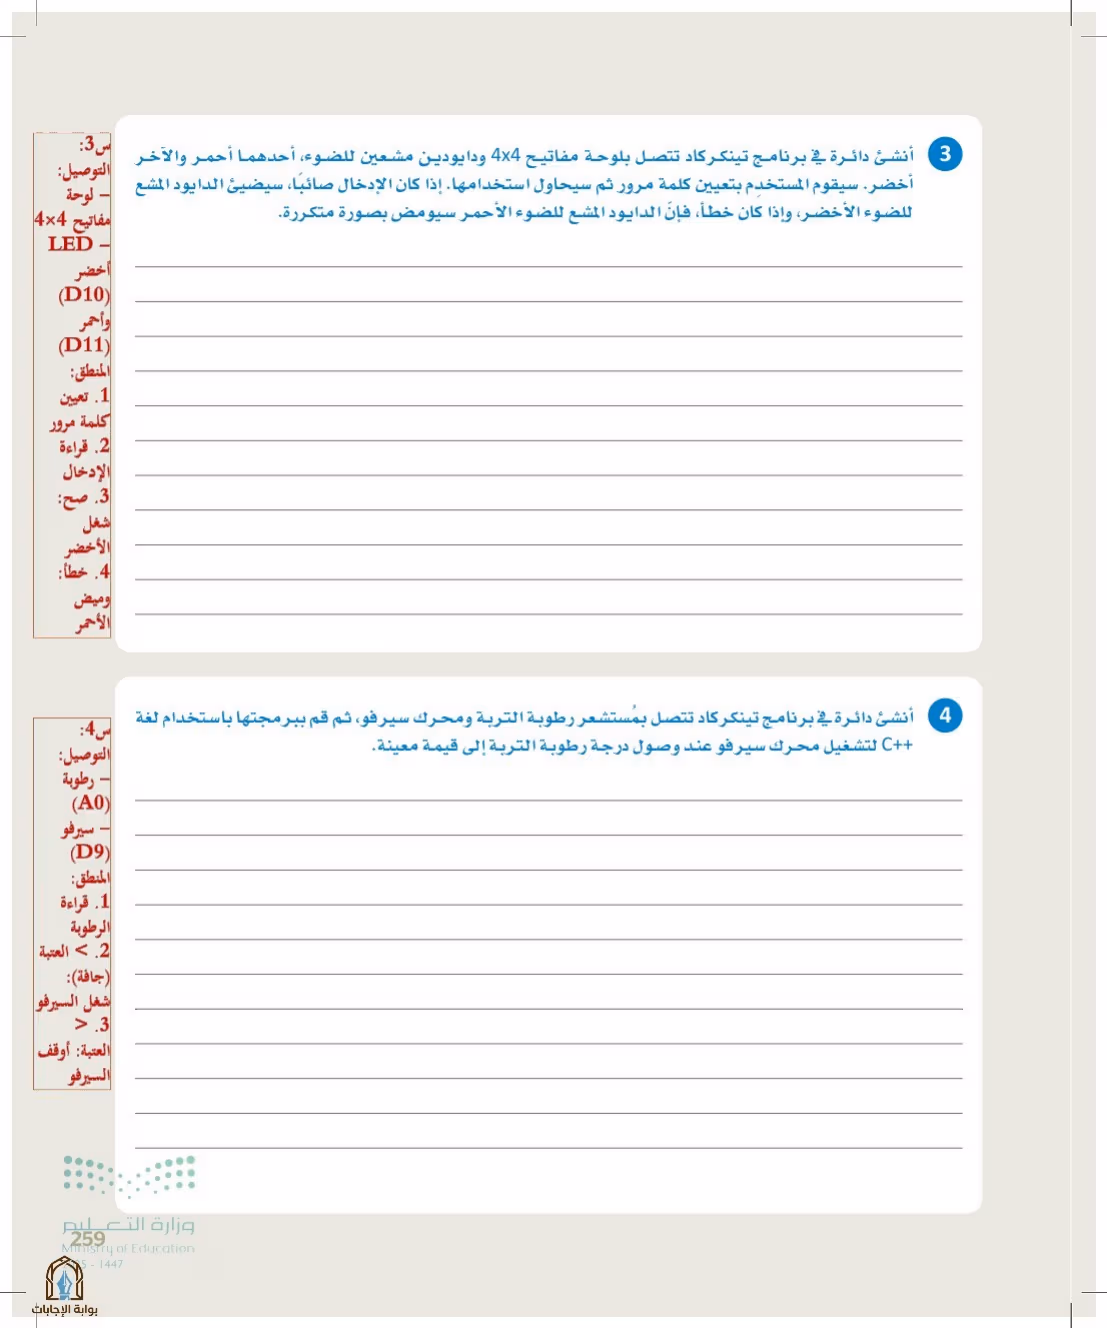 3
أنشئ دائرة في برنامج تينكركاد تتصل بلوحة مفاتيح 4x4 ودايودين مشعين للضوء، أحدهما أحمر والآخر
أخضر. سيقوم المستخدِم بتعيين كلمة مرور ثم سيحاول استخدامها. إذا كان الإدخال صائبًا، سيضيئ الدايود المشع
للضوء الأخضر، وإذا كان خطأ، فإنَّ الدايود المشع للضوء الأحمر سيومض بصورة متكررة.
س3:
التوصيل:
– لوحة
مفاتيح 4×4
– LED
أخضر
(D10)
وأحمر
(D11)
المنطق:
1. تعيين
كلمة مرور
2. قراءة
الإدخال
3. صح:
شغل
الأخضر
4. خطأ:
وميض
الأحمر
4
أنشئ دائرة في برنامج تينكركاد تتصل بمُستشعر رطوبة التربة ومحرك سيرفو، ثم قم ببرمجتها باستخدام لغة
C++ لتشغيل محرك سيرفو عند وصول درجة رطوبة التربة إلى قيمة معينة.
س4:
التوصيل:
– رطوبة
(A0)
– سيرفو
(D9)
المنطق:
1. قراءة
الرطوبة
2. > العتبة
(جافة):
شغل السيرفو
3. <
العتبة: أوقف
السيرفو
وزارة التعليم
259
Ministry of Education
5 - 1447
بوابة الإجابات